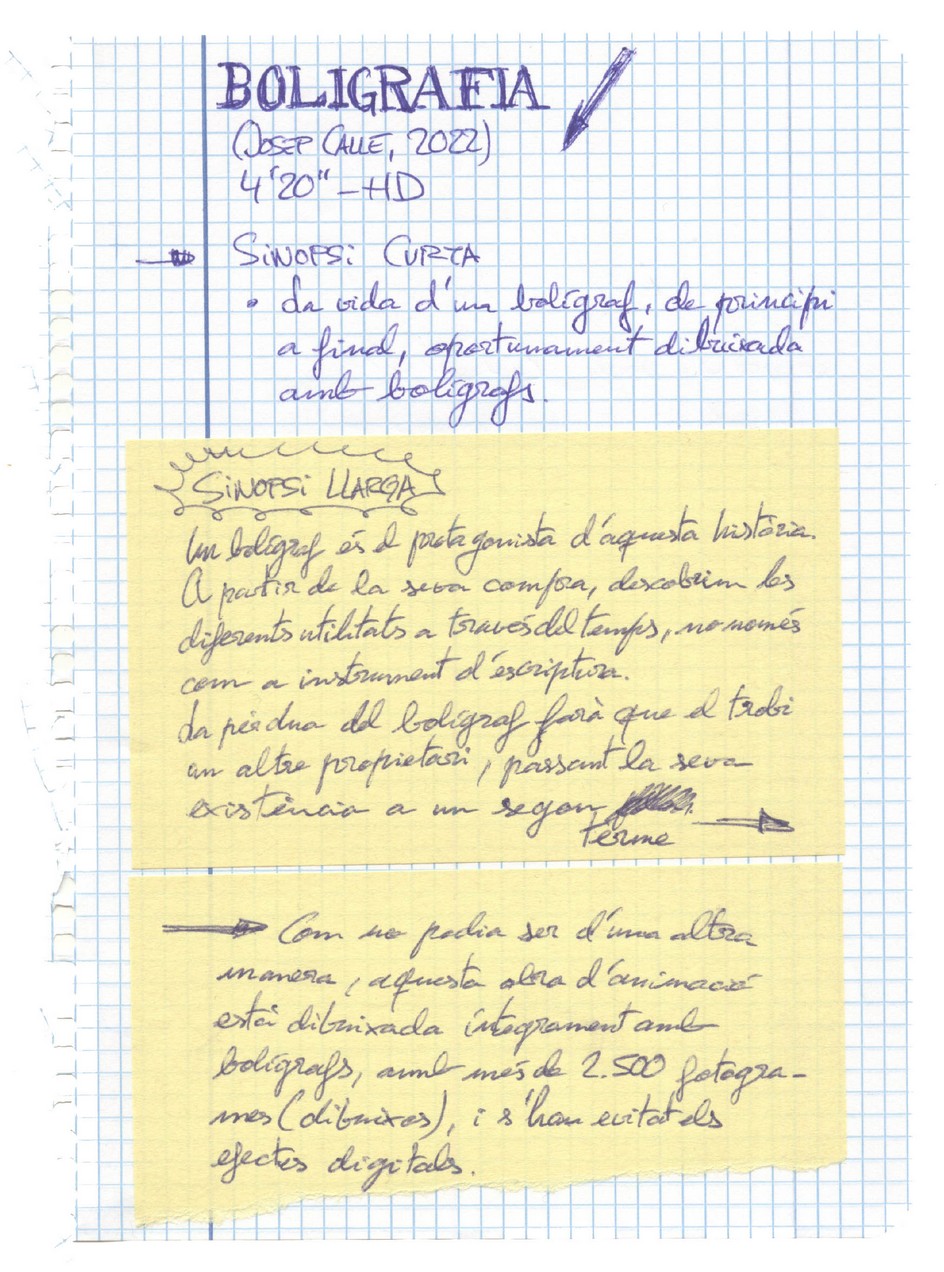 BOLIGRAFIA
(JOSEP CALLE, 2022)
4'20" - HD
SINOPSI CURTA
• La vida d'un bolígraf, de principi
a final, oportunament dibuixada
amb bolígrafs.
SINOPSI LLARGA
Un bolígraf és el protagonista d'aquesta història.
A partir de la seva compra, descobrim les
diferents utilitats a través del temps, no només
com a instrument d'escriptura.
La pèrdua del bolígraf farà que el trobi
un altre propietari, passant la seva
existència a un segon
terme
Com no podia ser d'una altra
manera, aquesta obra d'animació
està dibuixada íntegrament amb
bolígrafs, amb més de 2.500 fotogra-
mes (dibuixos), i s'han evitat els
efectes digitals.